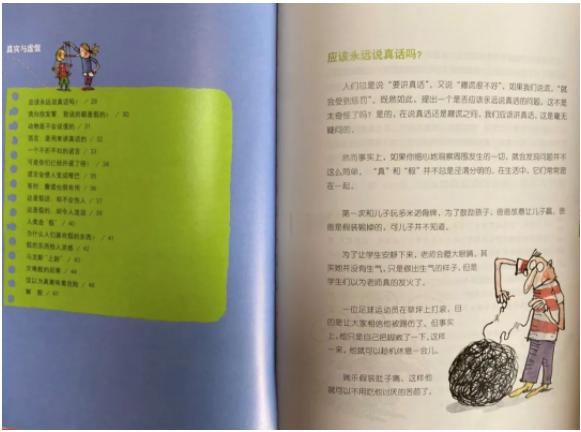 真实与虚假
应该永远说真话吗？ / 29
我向你发誓，我说的都是假的！ / 30
动物是不会说谎的 / 31
语言，是用来讲真话的 / 32
一个不折不扣的谎言 / 33
可是你们已经许诺了呀！ / 34
谎言会使人变成嘴巴 / 35
有时，撒谎也很有用 / 36
这是假话，却不会伤人 / 37
/ 38
人类造“假” / 39
为什么人们喜欢假的东西？ / 41
假的东西给人灵感 / 42
/ 43
/ 44
信以为真意味着危险 / 46
/ 47
应该永远说真话吗？
人们总是说“要讲真话”，又说“撒谎很不好”，如果我们说谎，“就
会受到惩罚”。既然如此，提出一个是否应该永远说真话的问题，这不是
太奇怪了吗？是的，在说真话还是撒谎之间，我们应该讲真话，这是毫无
疑问的。
然而事实上，如果你细心地观察周围发生的一切，就会发现问题并不
这么简单，“真”和“假”并不总是泾渭分明的。在生活中，它们常常混
在一起。
第一次和儿子玩多米诺骨牌，为了鼓励孩子，爸爸故意让儿子赢。爸
爸是假装输掉的，可儿子并不知道。
为了让学生安静下来，老师会瞪大眼睛，其
实她并没有生气，只是做出生气的样子，但是
学生们以为老师真的发火了。
一位足球运动员在草坪上打滚，目
的是让大家相信他被踢伤了。但事实
上，他只是自己把脚崴了一下，这样
一来，他就可以趁机休息一会儿。
璃乐假装肚子痛，这样他
就可以不用吃他讨厌的苦苣了。